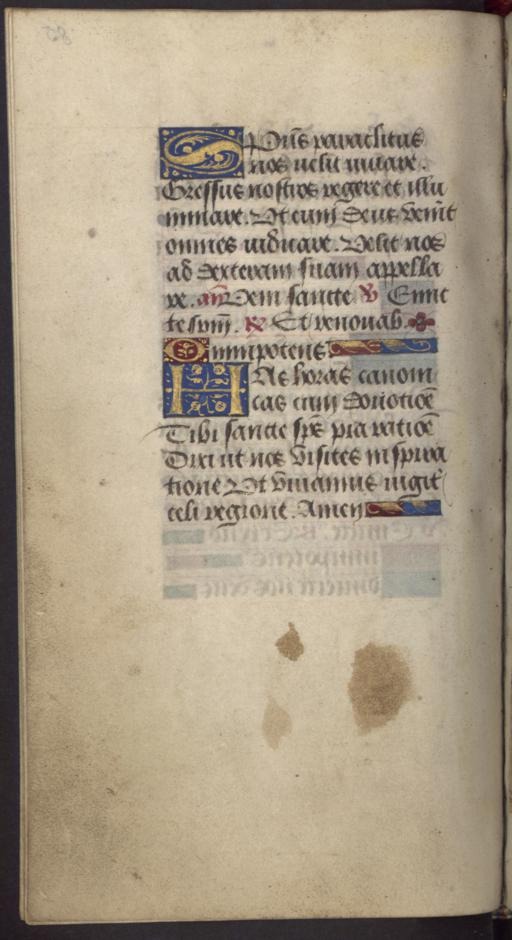 Spūs paraclitus
nos velit iuvare.
Gressus nostros regere et illu
minare. Ut cum Deus venit
omnes iudicare. Velit nos
ad dexteram suam appella
re. añ Veni sancte ℣ Emit
te spm̄. ℟ Et renovab.
Omnipotens
Has horas canoni
cas cum devotiōe
Tibi sancte sp̄s pia ratiōe
Dixi ut nos visites inspira
tione Ut vivamus iugit̄
celi regione. Amen